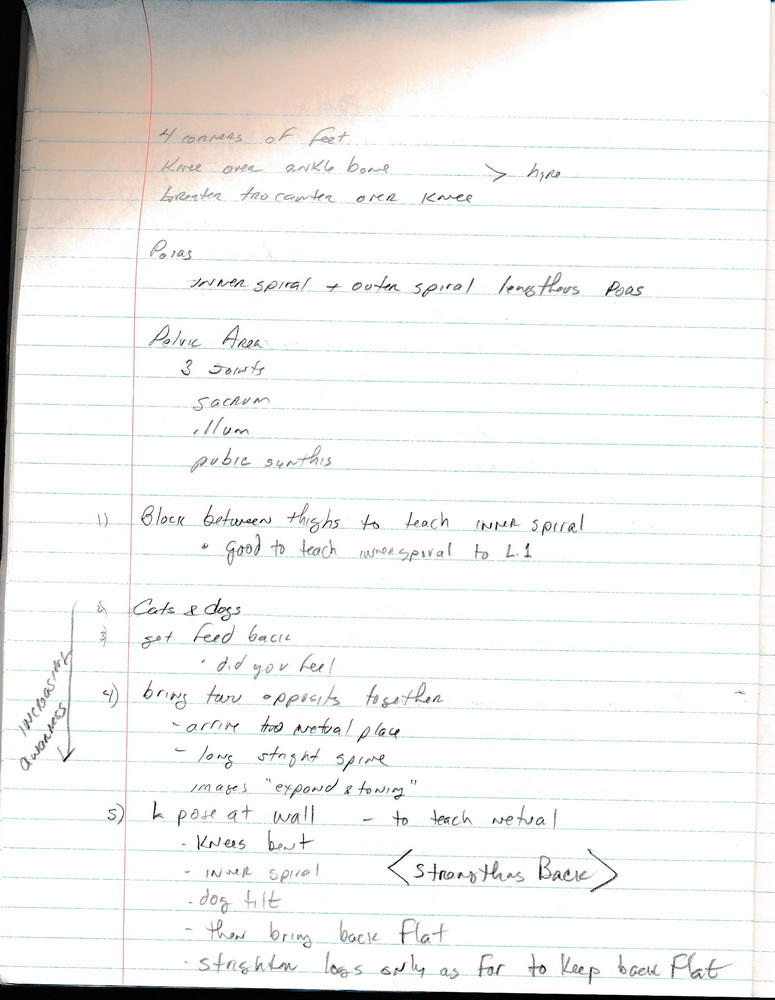 4 corners of feet
Knee over ankle bone > hyre
Greater trocanter over Knee
Psoas
inner spiral + outer spiral lengthens Psoas
Pelvic Area
3 Joints
sacrum
illum
pubic synthis
1) Block between thighs to teach inner spiral
• good to teach inner spiral to L.1
2) Cats & dogs
3) get feed back
• did you feel
4) bring two opposits together
- arrive two netual place
- long stright spine
images "expand & toning"
increasing awarness
5) L pose at wall - to teach netual
- Knees bent
- inner spiral <Strengthns Back>
- dog tilt
- then bring back Flat
- strighten legs only as Far to Keep back Flat